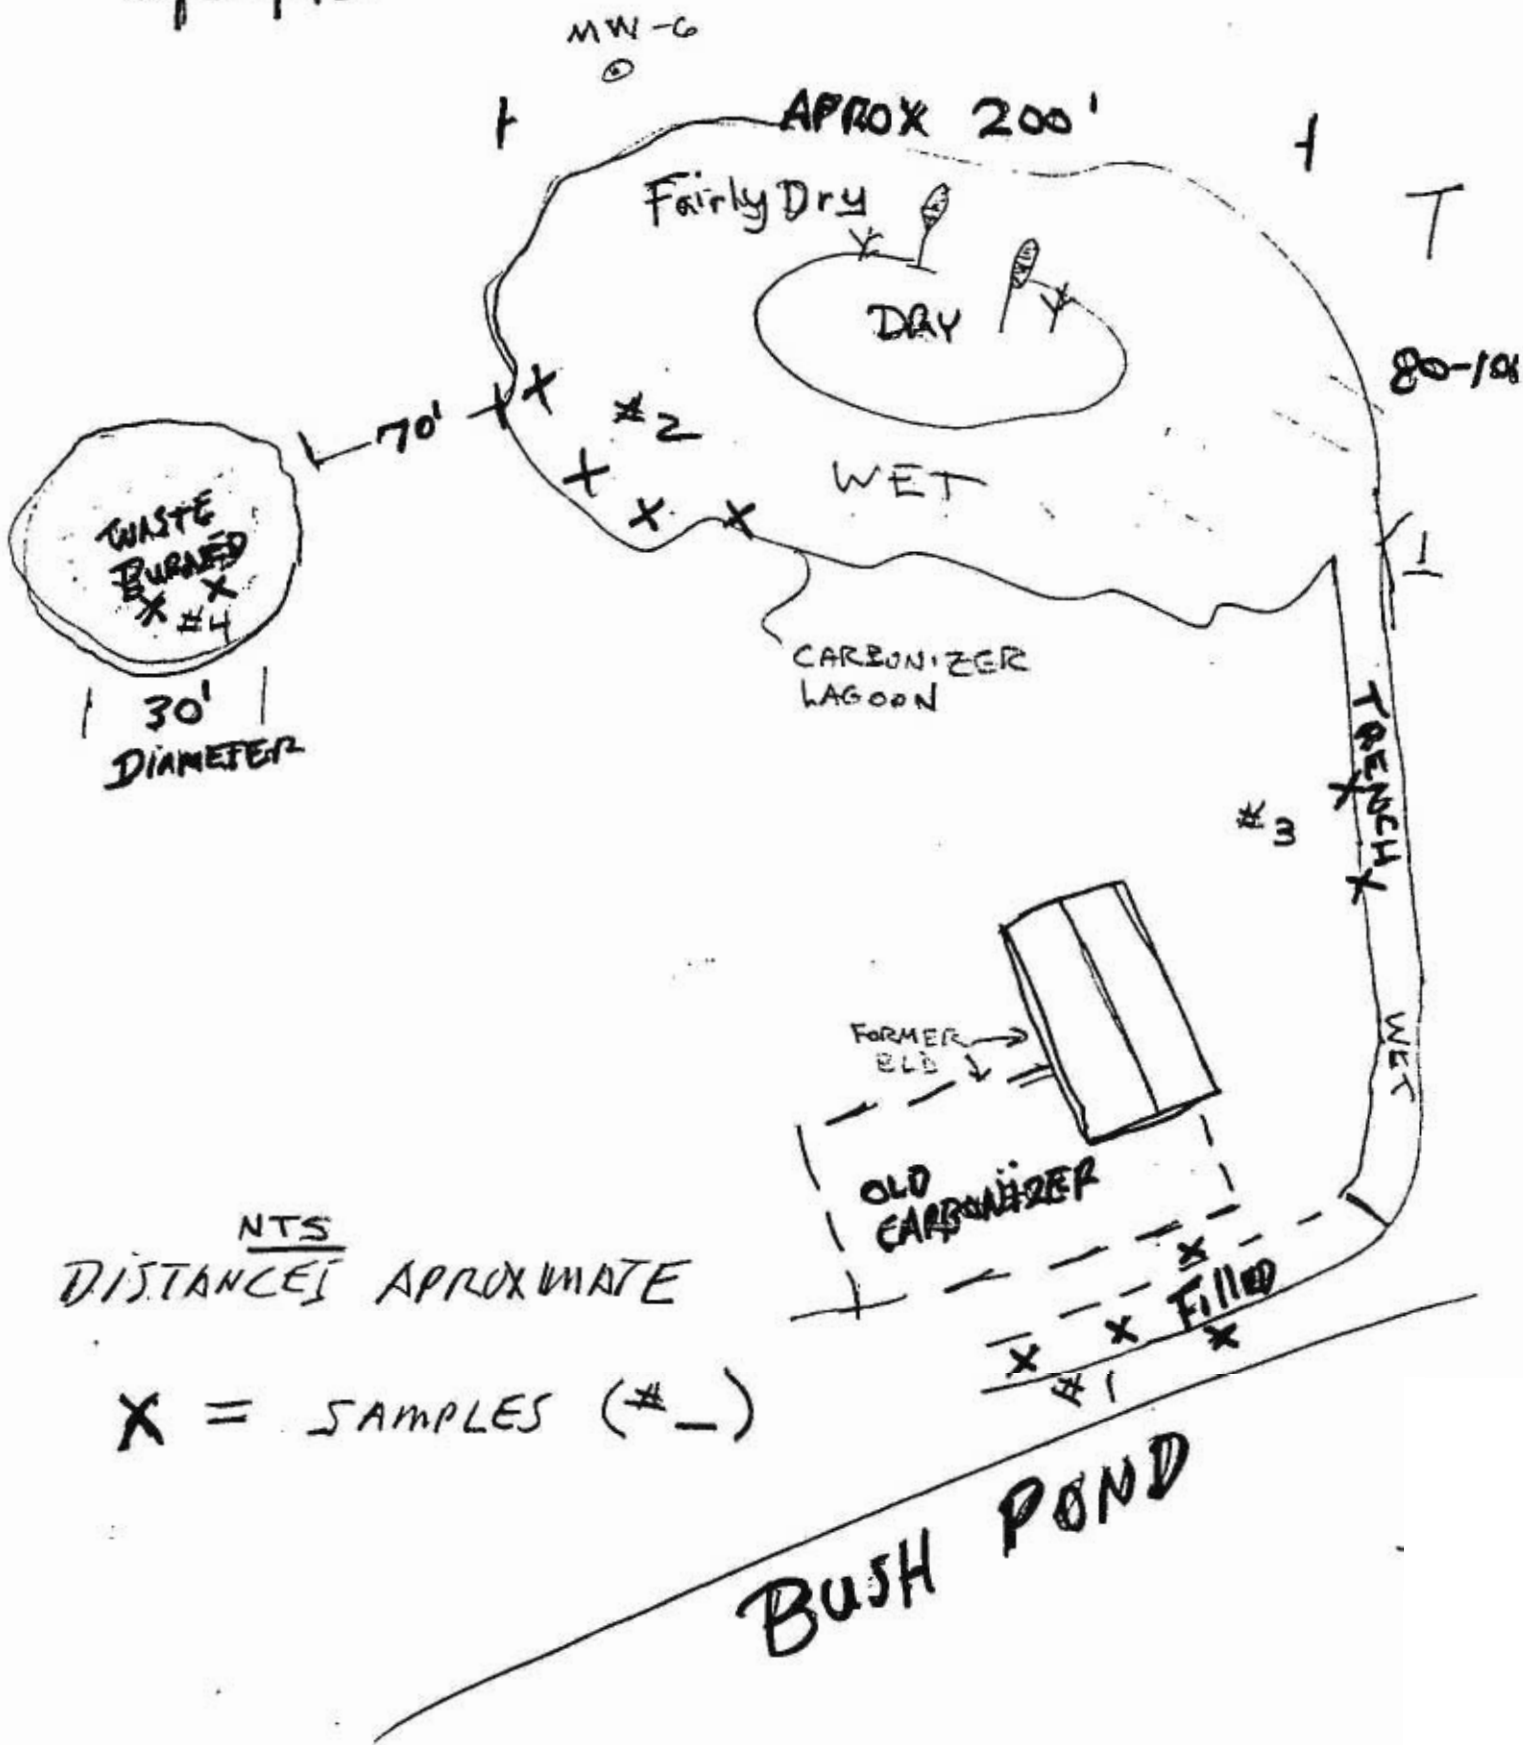 MW-6
APROX 200'
Fairly Dry
DRY
80-10
70'
#2
WET
WASTE
BURNED
#4
30'
DIAMETER
CARBONIZER
LAGOON
TRENCH
#3
WET
FORMER
BLD
OLD
CARBONIZER
NTS
DISTANCES APROXIMATE
Filled
X = SAMPLES (#_)
#1
BUSH POND